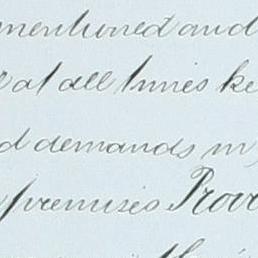 mentioned and
at all times ke
d demands in
premises Prov